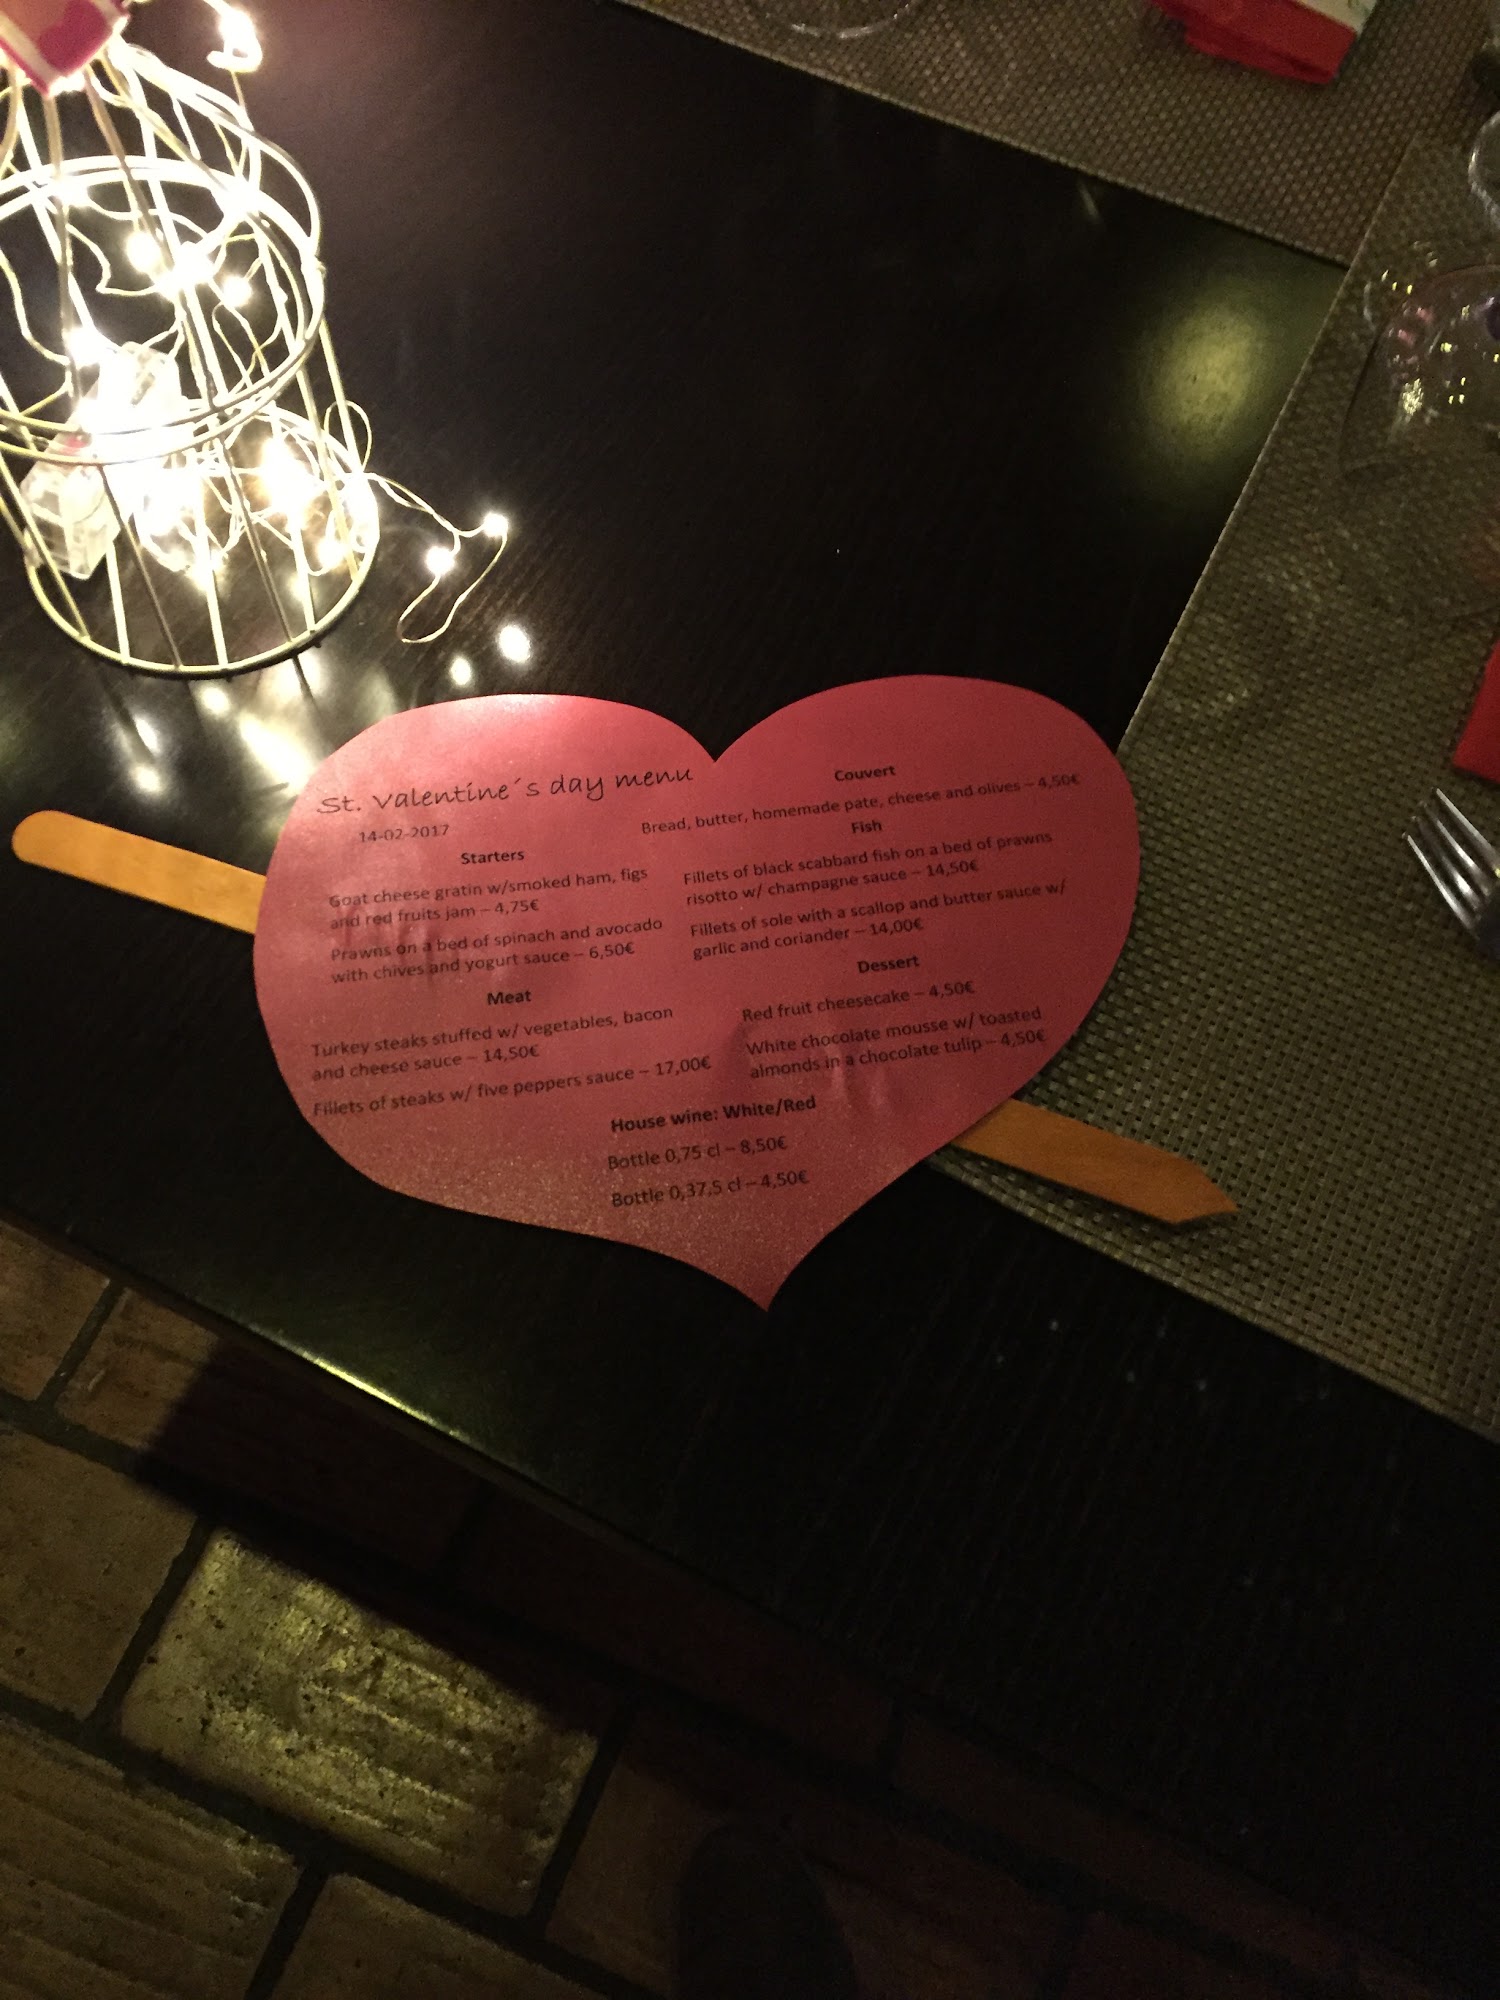 St. Valentine´s day menu
14-02-2017
Starters
Goat cheese gratin w/smoked ham, figs
and red fruits jam – 4,75€
Prawns on a bed of spinach and avocado
with chives and yogurt sauce – 6,50€
Meat
Turkey steaks stuffed w/ vegetables, bacon
and cheese sauce – 14,50€
Fillets of steaks w/ five peppers sauce – 17,00€
Couvert
Bread, butter, homemade pate, cheese and olives – 4,50€
Fish
Fillets of black scabbard fish on a bed of prawns
risotto w/ champagne sauce – 14,50€
Fillets of sole with a scallop and butter sauce w/
garlic and coriander – 14,00€
Dessert
Red fruit cheesecake – 4,50€
White chocolate mousse w/ toasted
almonds in a chocolate tulip – 4,50€
House wine: White/Red
Bottle 0,75 cl – 8,50€
Bottle 0,37,5 cl – 4,50€